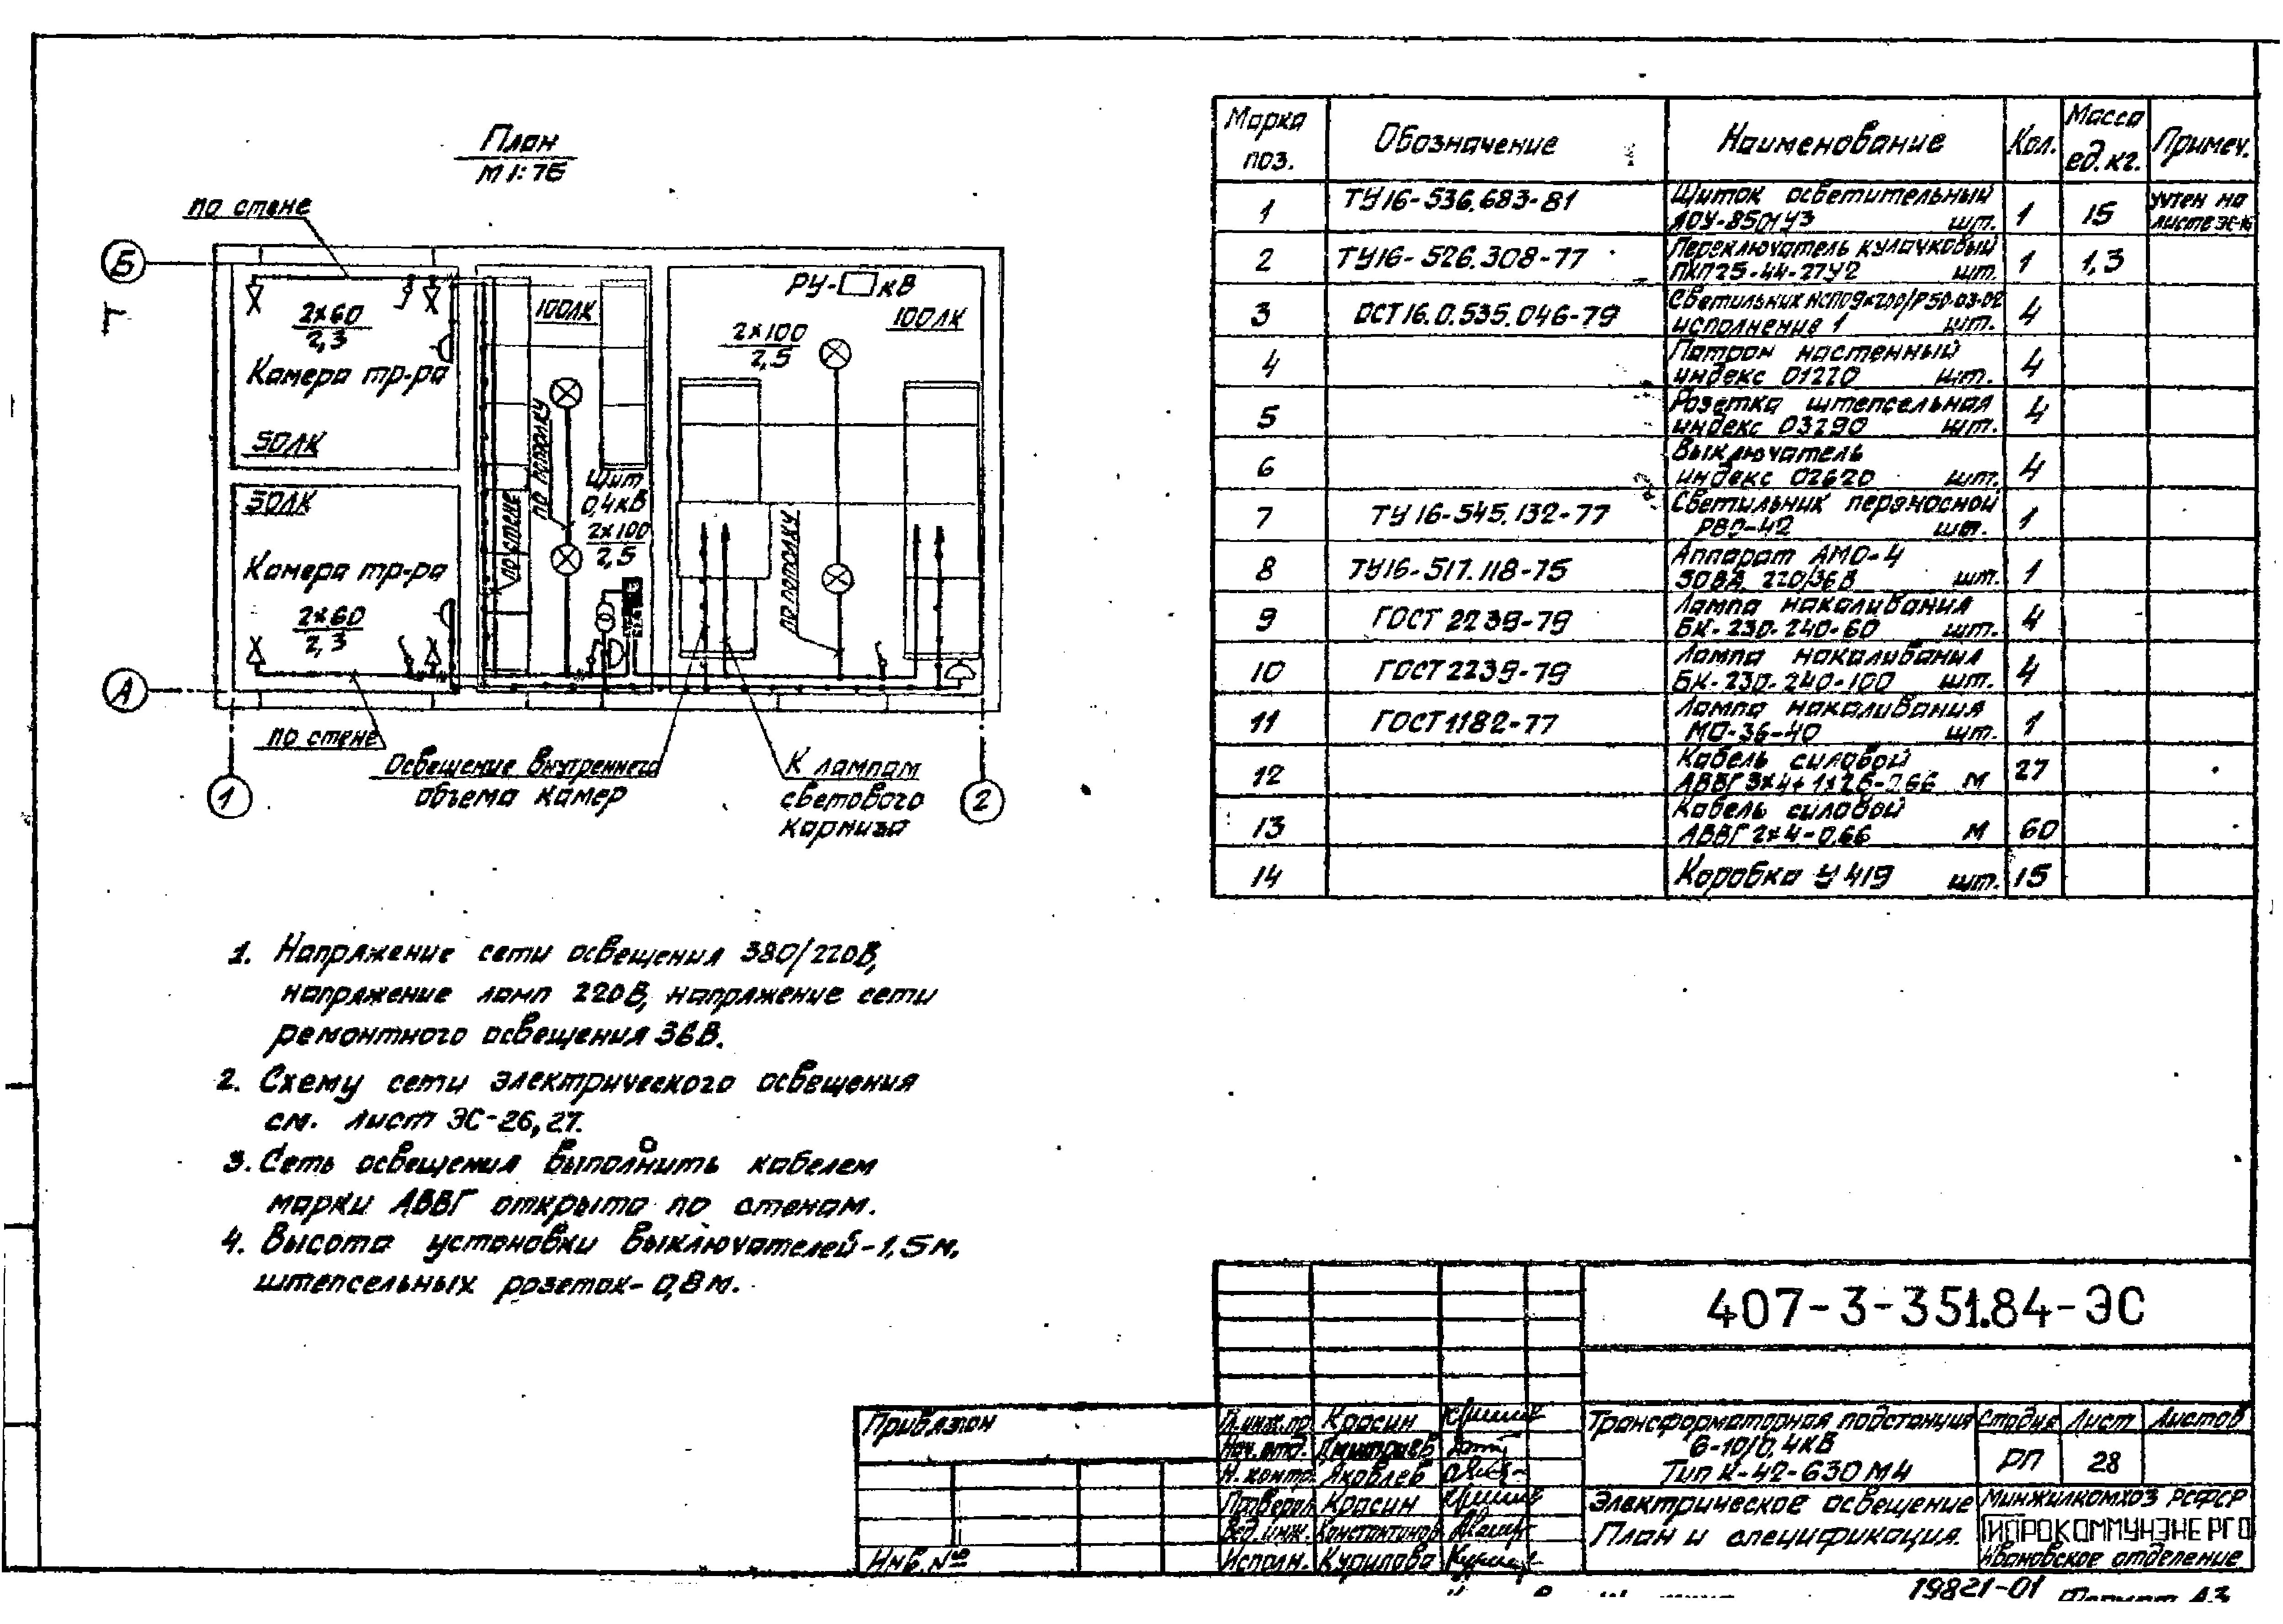 План
М 1:75
по стене
Б
2х60
2,3
Камера тр-ра
50лк
30лк
Камера тр-ра
2х60
2,3
А
по стене
1
100лк
по потолку
по стене
Щит
0,4кВ
2х100
2,5
РУ-□кВ
100лк
2х100
2,5
по потолку
Освещение внутреннего
объема камер
К лампам
светового
карниза
2
Марка поз. Обозначение Наименование Кол. Масса ед.кг. Примеч.
1 ТУ16-536.683-81 Щиток осветительный ЯОУ-8501У3 шт. 1 15 учтен на листе ЭС-
2 ТУ16-526.308-77 Переключатель кулачковый ПКП25-44-27У2 шт. 1 1,3
3 ОСТ16.0.535.046-79 Светильник НСП09х200/Р50-03-02 исполнение 1 шт. 4
4 Патрон настенный индекс 01220 шт. 4
5 Розетка штепсельная индекс 03290 шт. 4
6 Выключатель индекс 02620 шт. 4
7 ТУ16-545.132-77 Светильник переносной РВО-42 шт. 1
8 ТУ16-517.118-75 Аппарат АМО-4 50ВА, 220/36В шт. 1
9 ГОСТ 2239-79 Лампа накаливания БК-230-240-60 шт. 4
10 ГОСТ 2239-79 Лампа накаливания БК-230-240-100 шт. 4
11 ГОСТ1182-77 Лампа накаливания МО-36-40 шт. 1
12 Кабель силовой АВВГ 3х4+1х2,5-0,66 м 27
13 Кабель силовой АВВГ 2х4-0,66 м 60
14 Коробка У419 шт. 15
1. Напряжение сети освещения 380/220В,
напряжение ламп 220В, напряжение сети
ремонтного освещения 36В.
2. Схему сети электрического освещения
см. лист ЭС-26,27.
3. Сеть освещения выполнить кабелем
марки АВВГ открыто по стенам.
4. Высота установки выключателей-1,5м,
штепсельных розеток-0,8м.
407-3-351.84-ЭС
Привязан
Инв.№
Гл.инж.пр Красин
Нач.отд. Дмитриев
Н.контр. Яковлев
Проверил Красин
Вед.инж. Константинов
Исполн. Курилова
Трансформаторная подстанция
6-10/0,4кВ
Тип К-42-630М4
Стадия Лист Листов
РП 28
Электрическое освещение
План и спецификация.
Минжилкомхоз РСФСР
ГИПРОКОММУНЭНЕРГО
Ивановское отделение
19821-01 Формат А3